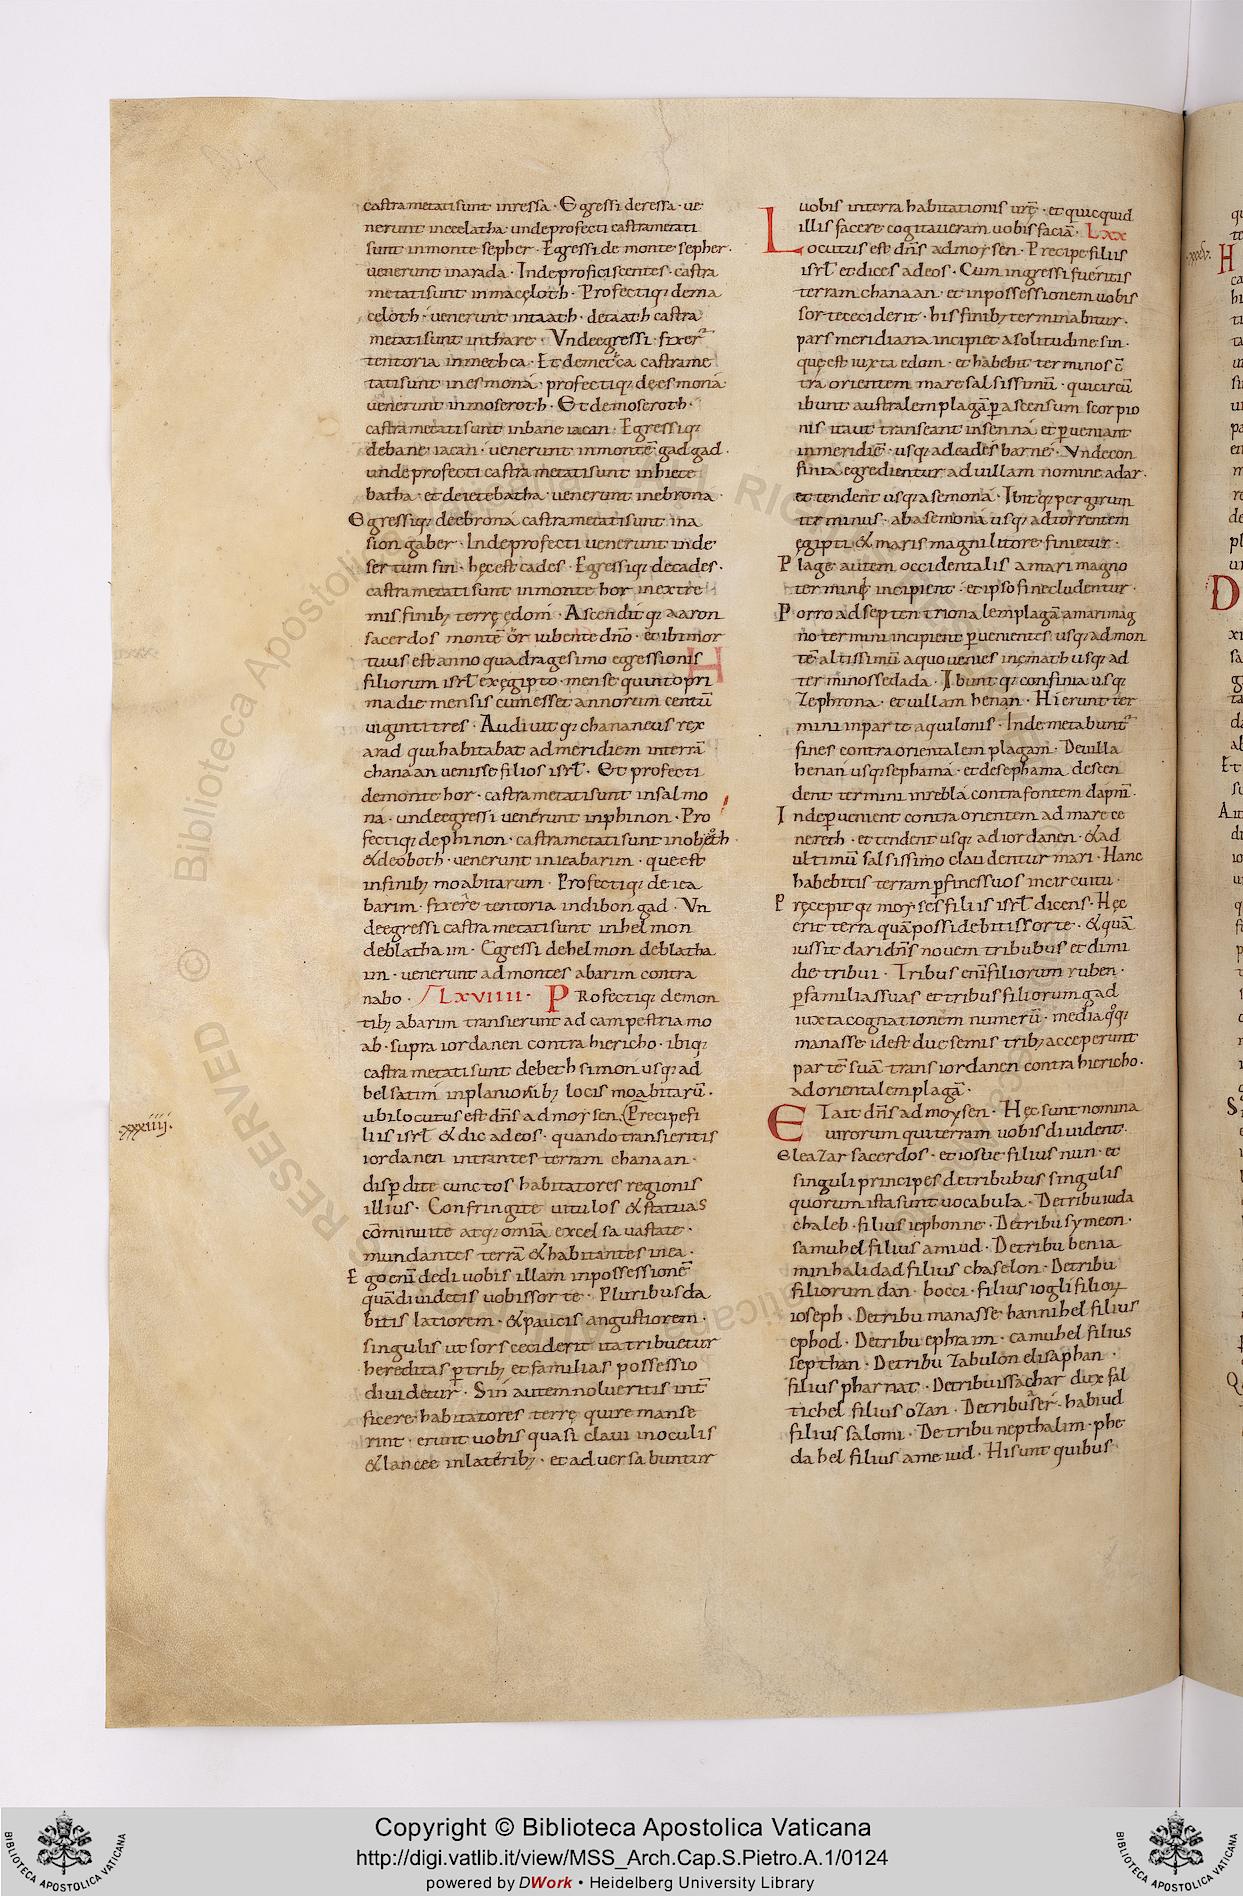 castrametati sunt inressa · Egressi deressa · ue
nerunt inceelatha · undeprofecti castrametati
sunt inmonte sepher · Egressi de monte sepher ·
uenerunt inarada · Indeproficiscentes · castra
metatisunt inmaceloth · Profectiq; dema
celoth · uenerunt intaath · detaath castra
metatisunt inthare · Vndeegressi · fixer̄
tentoria inmethca · Et demetca castrame
tatisunt inesmona · profectiq; deesmona
uenerunt inmoseroth · Et demoseroth ·
castrametatisunt inbane iacan · Egressiq;
debane iacan · uenerunt inmontē gadgad ·
unde profecti castrametatisunt inhiete
batha · et deietebatha · uenerunt inebrona ·
Egressiq; deebrona castrametatisunt ina
siongaber · Indeprofecti uenerunt inde
sertum sin · hęcest cades · Egressiq; decades ·
castrametatisunt inmonte hor inextre
mis finib; terrę edom · Ascenditq; aaron
sacerdos montē or iubente dn̄o · et ibi mor
tuus est anno quadragesimo egressionis
filiorum isrl̄ exęgipto · mense quinto pri
ma die mensis cumesset annorum centū
uigintitres · Audiuitq; chananeus rex
arad qui habitabat admeridiem interrā
chanaan uenisse filios isrl̄ · Et profecti
demonte hor · castrametatisunt insalmo
na · undeegressi uenerunt inphinon · Pro
fectiq; dephinon · castrametatisunt inoboth ·
&deoboth · uenerunt inieabarim · que est
infinib; moabitarum · Profectiq; de iea
barim · fixere tentoria indibongad · Vn
deegressi castrametatisunt inhelmon
deblathaim · Egressi dehelmon deblatha
im · uenerunt admontes abarim contra
nabo · LXVIIII · Profectiq; demon
tib; abarim transierunt ad campestria mo
ab · supra iordanen contra hiericho · ibiq;
castrametatisunt debethsimon usq; ad
belsatim inplaniorib; locis moabitarū ·
ubi locutus est dn̄s ad moysen · Precipe fi
xxxiiij.
liis isrl̄ & dic ad eos · quando transieritis
iordanen intrantes terram chanaan ·
disp̱dite cunctos habitatores regionis
illius · Confringite uitulos & statuas
cōminuite atq; omīa excelsa uastate ·
mundantes terrā & habitantes inea ·
Ego enī dedi uobis illam inpossessionē
quādiuidetis uobis sorte · Pluribus da
bitis latiorem · & paucis angustiorem ·
singulis ut sors ceciderit ita tribuetur
hereditas p̱ trib; et familias possessio
diuidetur · Sin autem nolueritis int̄
ficere habitatores terrę qui remanse
rint · erunt uobis quasi claui inoculis
& lancee inlaterib; · et aduersabuntur
uobis interra habitationis ur̄ę · et quicquid
illis facere cogitaueram uobis faciā · LXX
Locutus est dn̄s admoysen · Precipe filiis
isrl̄ et dices adeos · Cum ingressi fueritis
terram chanaan · et inpossessionem uobis
sorte ceciderit · his finib; terminabitur ·
pars meridiana incipiet asolitudine sin ·
quę est iuxta edom · et habebit terminos c̄
tra orientem mare salsissimū · qui circū
ibunt australem plagā p̱ ascensum scorpio
nis ita ut transeant insenna et p̱ueniant
inmeridiē · usq; adcades barne · Vnde con
finia egredientur aduillam nomine adar ·
et tendent usq; asemona · Ibitq; per girum
terminus · abasemona usq; adtorrentem
ęgipti & maris magni litore finietur ·
Plage autem occidentalis amari magno
terminus incipient · et ipso fine cludentur ·
Porro ad septentrionalem plagā amarimag
no termini incipient p̱uenientes usq; admon
tē altissimū aquo uenies inęmath usq; ad
terminossedada · Ibuntq; confinia usq;
Zephrona · et uillam henan · Hi erunt ter
mini inparte aquilonis · Inde metabunt̄
fines contra orientalem plagam · Deuilla
henan usq; sephama · et desephama descen
dent termini inrebla contra fontem dapnī ·
Inde p̱uenient contra orientem ad mare ce
nereth · et tendent usq; ad iordanen · & ad
ultimū salsissimo claudentur mari · Hanc
habebitis terram p̱ fines suos incircuitu ·
Pręcepitq; moyses filiis isrl̄ dicens · Hęc
erit terra quā possidebitis sorte · & quā
iussit dari dn̄s nouem tribubus et dimi
die tribui · Tribus enī filiorum ruben ·
p̱ familias suas et tribus filiorum gad
iuxta cognationem numerū · media qq;
manasse idest due semis trib; acceperunt
partē suā trans iordanen contra hiericho ·
ad orientalem plagā ·
Et ait dn̄s ad moysen · Hęc sunt nomina
uirorum qui terram uobis diuident ·
Eleazar sacerdos · et iosue filius nun · et
singuli principes detribubus singulis
quorum ista sunt uocabula · Detribu iuda
chaleb · filius iephonne · Detribu symeon ·
samuhel filius amiud · Detribu benia
min halidad filius chaselon · Detribu
filiorum dan · bocci · filius iogli filioꝝ
ioseph · Detribu manasse hannihel filius
ephod · Detribu ephraim · camuhel filius
septhan · Detribu Zabulon elisaphan ·
filius pharnat · Detribu issachar dux fal
tichel filius oZan · Detribu aser · habiud
filius salomi · Detribu nepthalim · phe
dahel filius ameiud · Hi sunt quibus